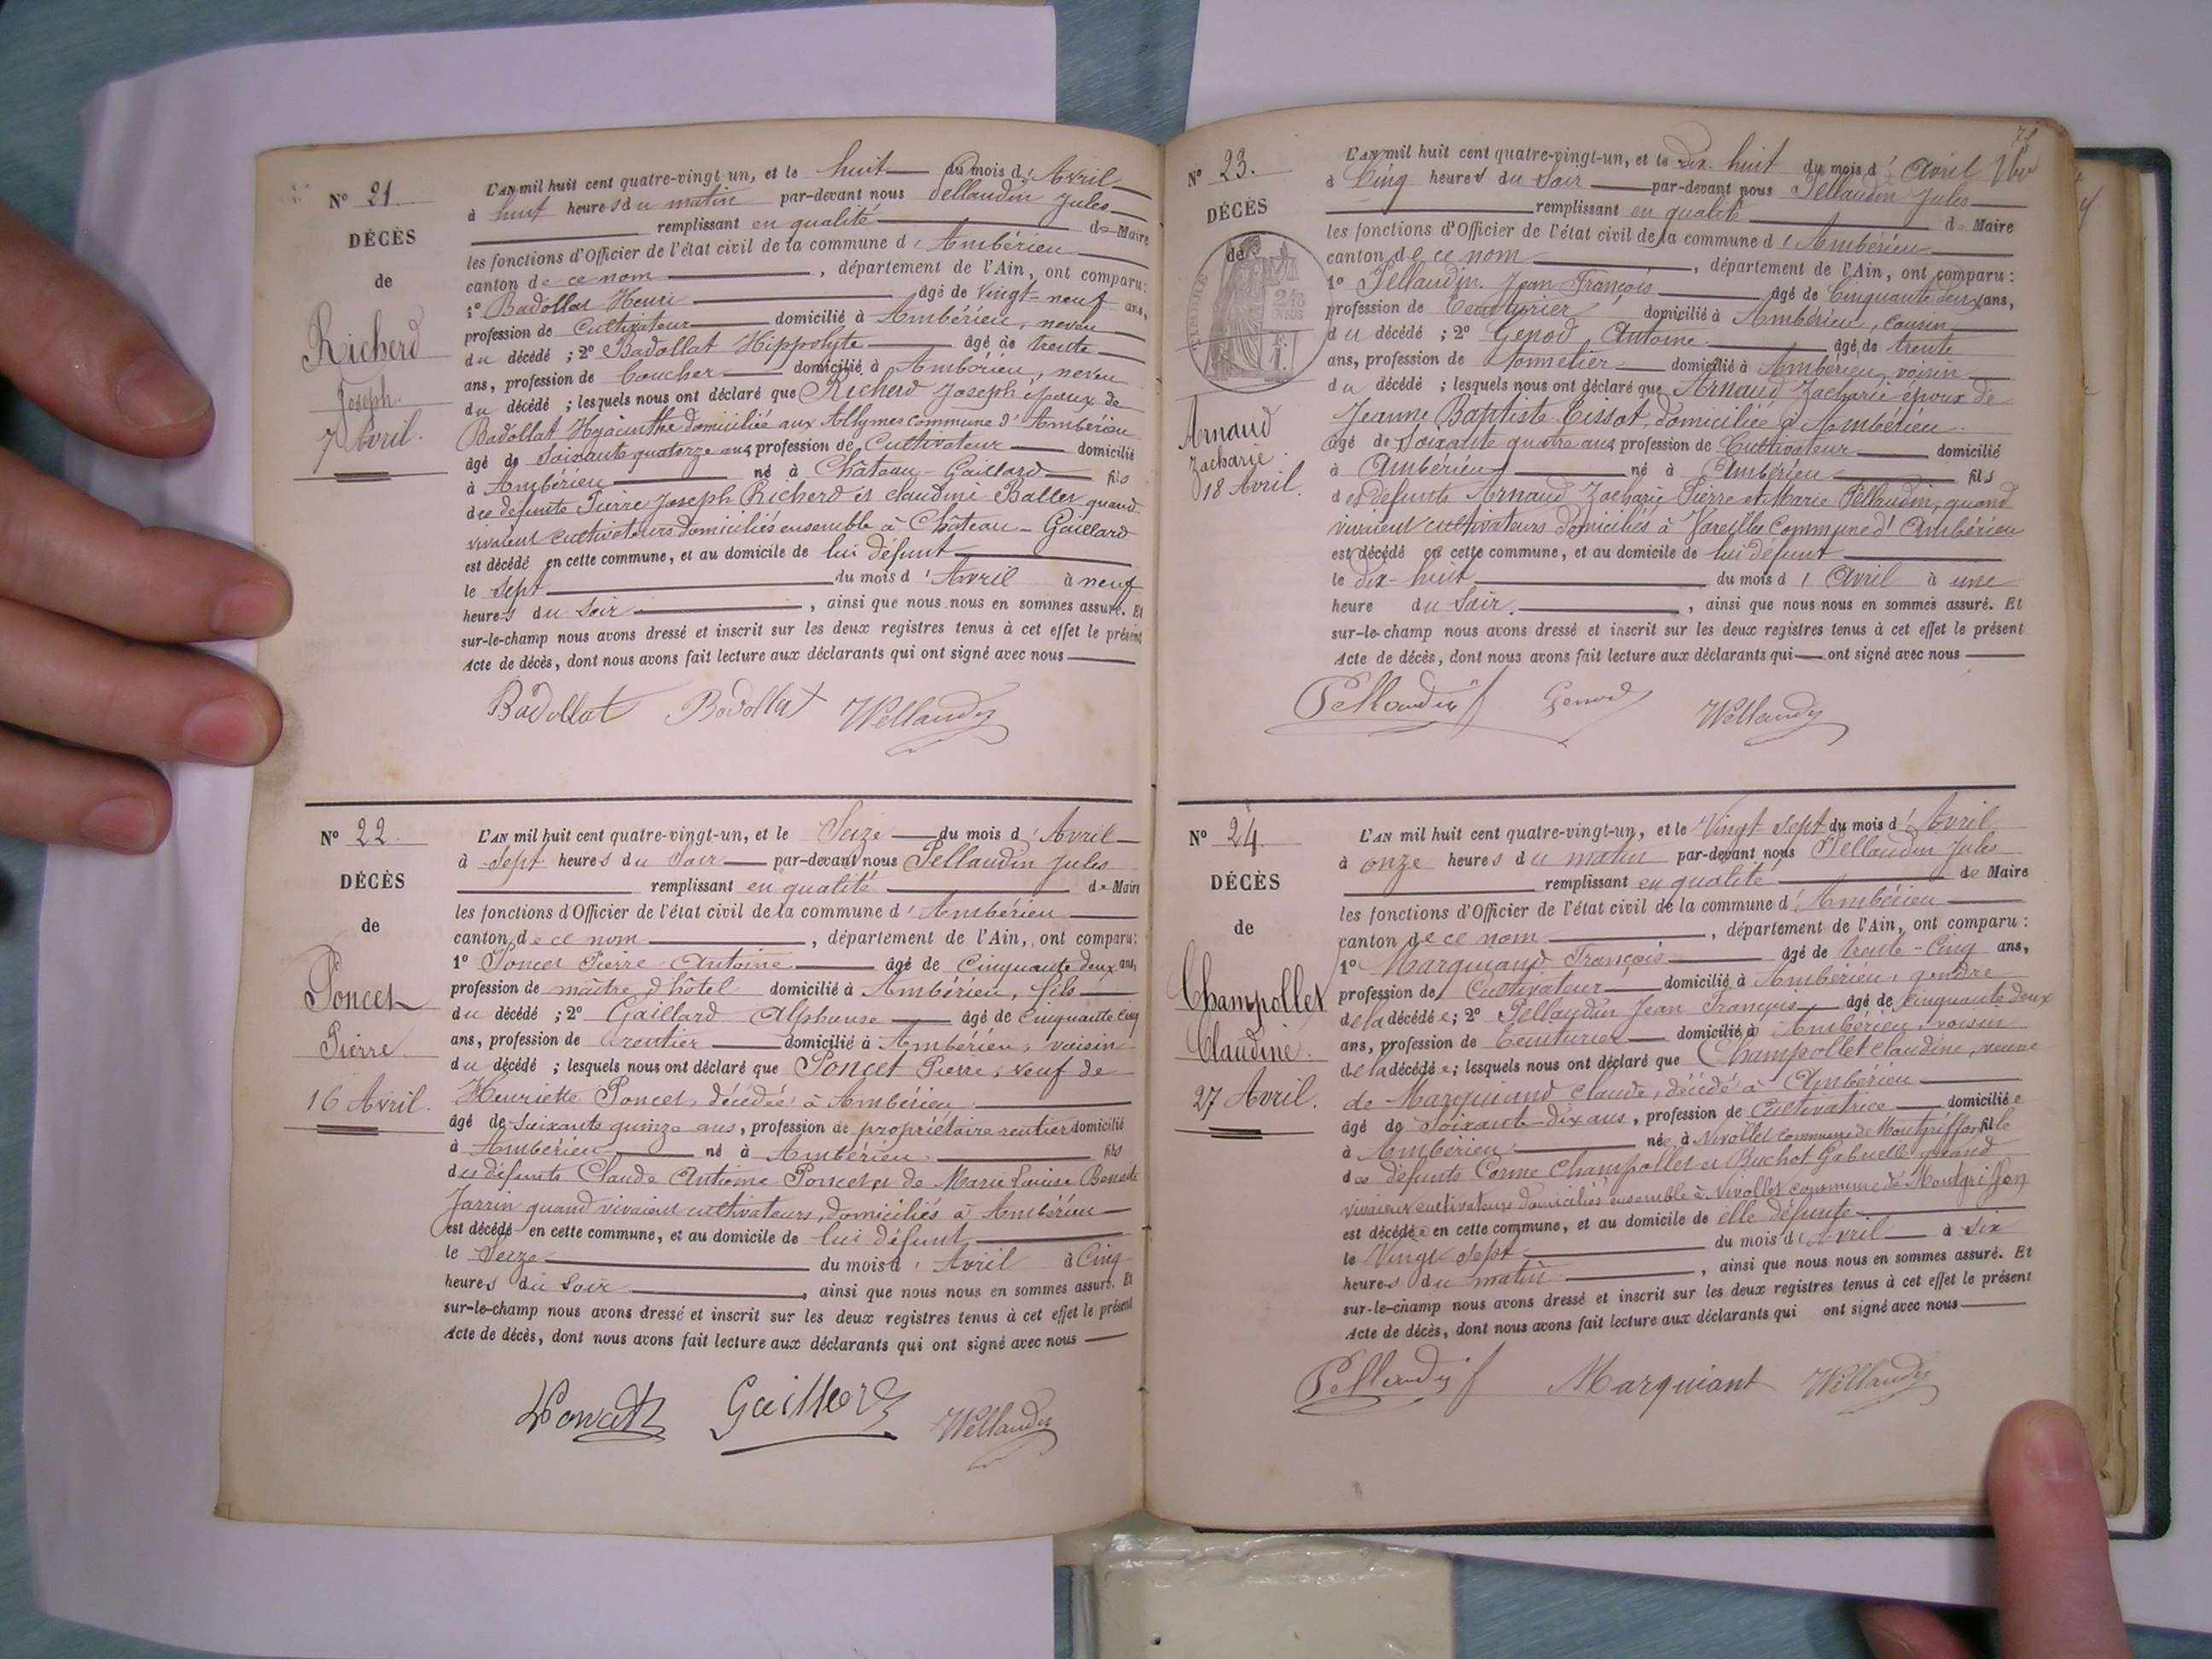 N° 21.
DÉCÈS
de
Richerd
Joseph.
7 Avril.
L'AN mil huit cent quatre-vingt un, et le huit du mois d'Avril
à huit heures du matin par-devant nous Pellaudin Jules
remplissant en qualité de Maire
les fonctions d'Officier de l'état civil de la commune d'Ambérieu
canton de ce nom, département de l'Ain, ont comparu:
1° Badollat Henri âgé de vingt-neuf ans,
profession de Cultivateur domicilié à Ambérieu, neveu
du décédé ; 2° Badollat Hippolyte âgé de trente
ans, profession de boucher domicilié à Ambérieu, neveu
du décédé ; lesquels nous ont déclaré que Richerd Joseph époux de
Badollat Hyacinthe domiciliée aux Allymes commune d'Ambérieu
âgé de soixante quatorze ans profession de Cultivateur domicilié
à Ambérieu né à Château-Gaillard fils
des défunts Pierre Joseph Richerd et claudine Ballet quand
vivaient cultivateurs domiciliés ensemble à Château-Gaillard
est décédé en cette commune, et au domicile de lui défunt
le sept du mois d'Avril à neuf
heures du soir, ainsi que nous nous en sommes assuré. Et
sur-le-champ nous avons dressé et inscrit sur les deux registres tenus à cet effet le présent
Acte de décès, dont nous avons fait lecture aux déclarants qui ont signé avec nous
Badollat Badollat Pellaudin
N° 22.
DÉCÈS
de
Poncet
Pierre.
16 Avril.
L'AN mil huit cent quatre-vingt-un, et le Seize du mois d'Avril
à sept heures du soir par-devant nous Pellaudin Jules
remplissant en qualité de Maire
les fonctions d'Officier de l'état civil de la commune d'Ambérieu
canton de ce nom, département de l'Ain, ont comparu:
1° Poncet Pierre Antoine âgé de Cinquante deux ans,
profession de maître d'hôtel domicilié à Ambérieu, fils
du décédé ; 2° Gaillard Alphonse âgé de cinquante cinq
ans, profession de rentier domicilié à Ambérieu, voisin
du décédé ; lesquels nous ont déclaré que Poncet Pierre, veuf de
Henriette Poncet, décédée à Ambérieu
âgé de soixante quinze ans, profession de propriétaire rentier domicilié
à Ambérieu né à Ambérieu fils
des défunts Claude Antoine Poncet et de Marie Louise Benoite
Jarrin quand vivaient cultivateurs, domiciliés à Ambérieu
est décédé en cette commune, et au domicile de lui défunt
le Seize du mois d'Avril à Cinq
heures du soir, ainsi que nous nous en sommes assuré. Et
sur-le-champ nous avons dressé et inscrit sur les deux registres tenus à cet effet le présent
Acte de décès, dont nous avons fait lecture aux déclarants qui ont signé avec nous
Gaillard Pellaudin
N° 23.
DÉCÈS
de
Arnaud
Zacharie.
18 Avril.
L'AN mil huit cent quatre-vingt-un, et le Dix-huit du mois d'Avril
à Cinq heures du Soir par-devant nous Pellaudin Jules
remplissant en qualité de Maire
les fonctions d'Officier de l'état civil de la commune d'Ambérieu
canton de ce nom, département de l'Ain, ont comparu:
1° Pellaudin Jean François âgé de Cinquante deux ans,
profession de Teinturier domicilié à Ambérieu, cousin
du décédé ; 2° Genod Antoine âgé de trente
ans, profession de tonnelier domicilié à Ambérieu, voisin
du décédé ; lesquels nous ont déclaré que Arnaud Zacharie époux de
Jeanne Baptiste Tissot, domiciliée à Ambérieu
âgé de soixante quatre ans profession de Cultivateur domicilié
à Ambérieu né à Ambérieu fils
des défunts Arnaud Zacharie Pierre et Marie Pellaudin, quand
vivaient cultivateurs domiciliés à Vareilles Commune d'Ambérieu
est décédé en cette commune, et au domicile de lui défunt
le Dix-huit du mois d'Avril à une
heure du Soir, ainsi que nous nous en sommes assuré. Et
sur-le-champ nous avons dressé et inscrit sur les deux registres tenus à cet effet le présent
Acte de décès, dont nous avons fait lecture aux déclarants qui ont signé avec nous
Pellaudin Genod Pellaudin
N° 24.
DÉCÈS
de
Champollet
Claudine.
27 Avril.
L'AN mil huit cent quatre-vingt-un, et le Vingt Sept du mois d'Avril
à onze heures du matin par-devant nous Pellaudin Jules
remplissant en qualité de Maire
les fonctions d'Officier de l'état civil de la commune d'Ambérieu
canton de ce nom, département de l'Ain, ont comparu:
1° Marquiand François âgé de trente-Cinq ans,
profession de Cultivateur domicilié à Ambérieu, gendre
de la décédée; 2° Pellaudin Jean François âgé de cinquante deux
ans, profession de Teinturier domicilié à Ambérieu, voisin
de la décédée; lesquels nous ont déclaré que Champollet Claudine, veuve
de Marquiand Claude, décédé à Ambérieu
âgé de soixante-dix ans, profession de Cultivatrice domiciliée
à Ambérieu née à Nivollet commune de Montgriffon fille
des défunts Corme Champollet et Buchot Gabrielle quand
vivaient cultivateurs domiciliés ensemble à Nivollet commune de Montgriffon
est décédée en cette commune, et au domicile de elle défunte
le Vingt Sept du mois d'Avril à six
heures du matin, ainsi que nous nous en sommes assuré. Et
sur-le-champ nous avons dressé et inscrit sur les deux registres tenus à cet effet le présent
Acte de décès, dont nous avons fait lecture aux déclarants qui ont signé avec nous
Pellaudin Marquiant Pellaudin